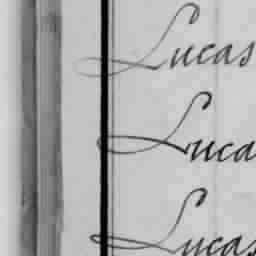 Lucas
Luca
Lucas